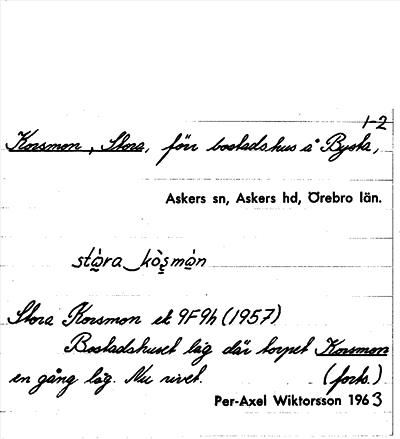 1-2
Korsmon, Stora, förr bostadshus å Bysta,
Askers sn, Askers hd, Örebro län.
stòra kòs̱mòn
Stora Korsmon ek 9F9h (1957)
Bostadshuset låg där torpet Korsmon
en gång låg. Nu rivet. (forts.)
Per-Axel Wiktorsson 1963